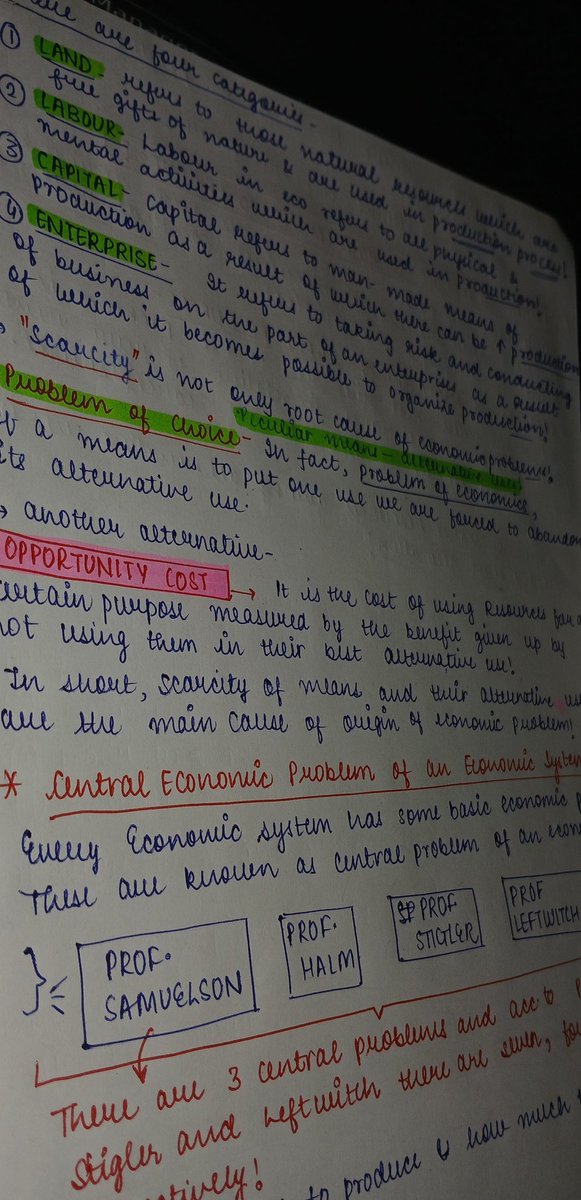 are four categories-
① LAND- refers to those natural resources which are
free gifts of nature & are used in production process!
② LABOUR- Labour in eco refers to all physical &
mental activities which are used in production!
③ CAPITAL- capital refers to man-made means of
production as a result of which there can be ↑ production
④ ENTERPRISE- It refers to taking risk and conducting
of business on the part of an enterprise as a result
of which it becomes possible to organize production!
→ "Scarcity" is not only root cause of economic problems!
Peculiar means - alternative uses
Problem of choice- In fact, problem of economics,
If a means is to put one use we are forced to abandon
its alternative use.
→ another alternative-
OPPORTUNITY COST → It is the cost of using resources for a
certain purpose measured by the benefit given up by
not using them in their best alternative use!
In short, scarcity of means and their alternative
are the main cause of origin of economic problem!
* Central Economic Problem of an Economic System
Every Economic system has some basic economic
These are known as central problem of an
PROF. SAMUELSON
PROF. HALM
PROF STIGLER
PROF LEFTWITCH
There are 3 central problems and acc to
Stigler and Leftwitch there are seven,
to produce & how much